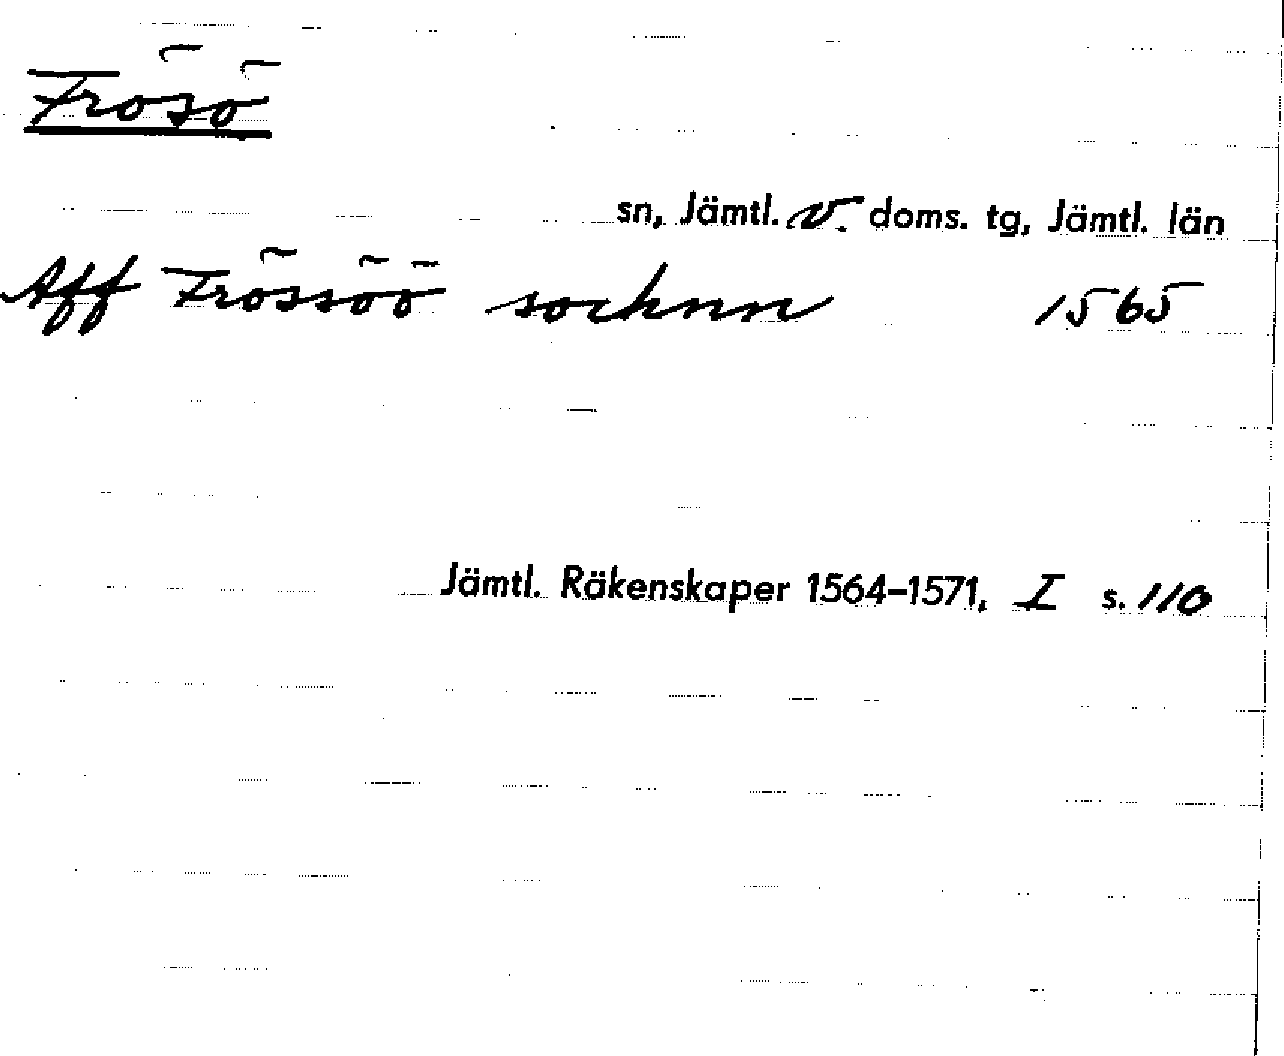 Frösö
sn, Jämtl. v. doms. tg, Jämtl. län
Aff Frössöö socknn 1565
Jämtl. Räkenskaper 1564–1571, I s. 110